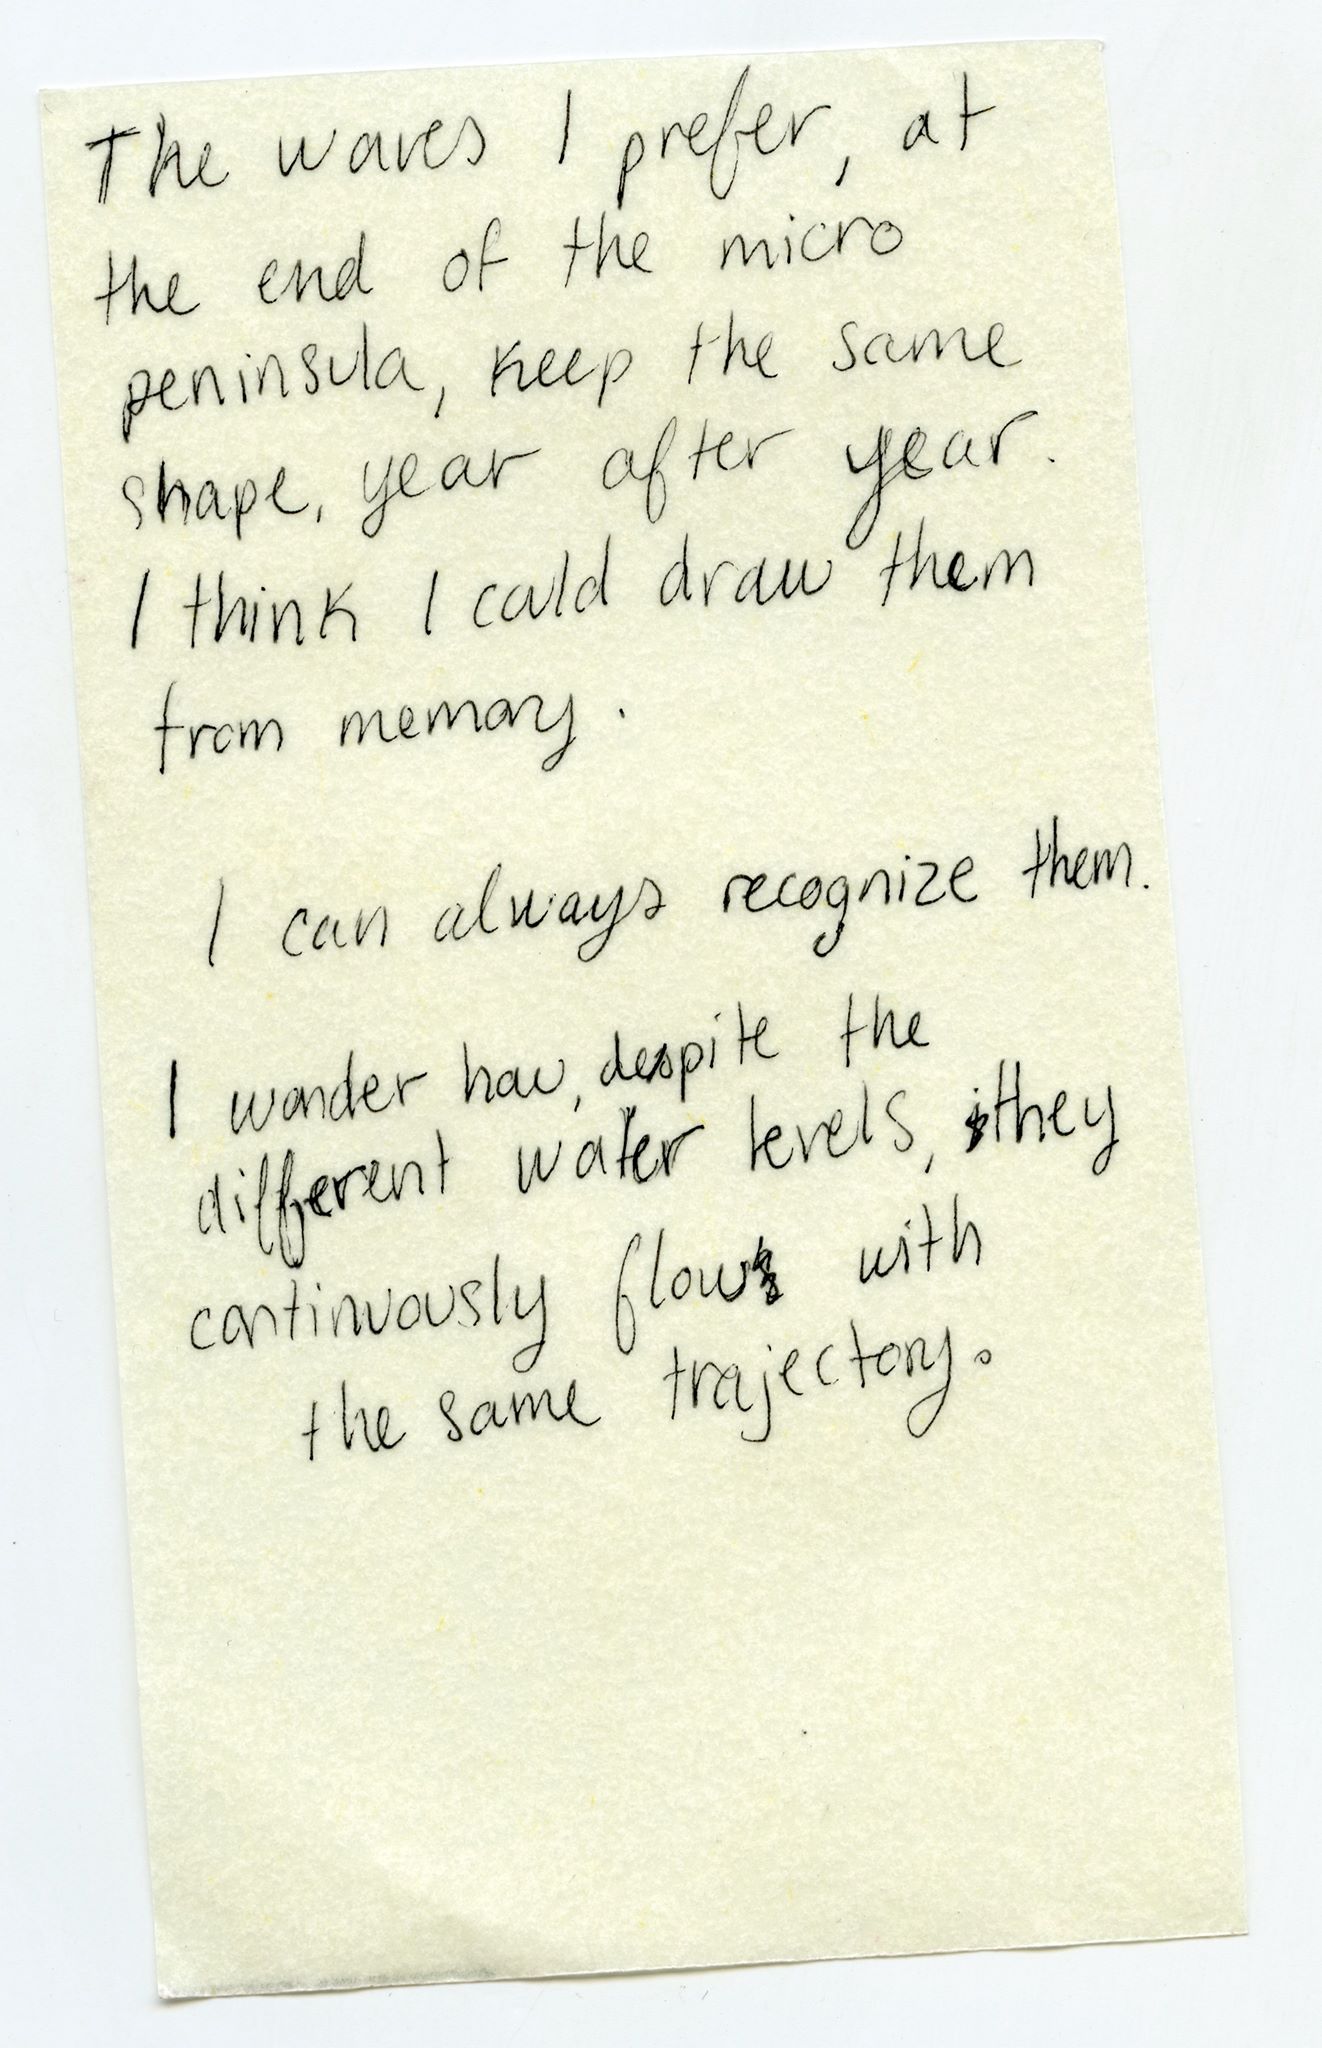 The waves I prefer, at
the end of the micro
peninsula, keep the same
shape, year after year.
I think I could draw them
from memory.
I can always recognize them.
I wonder how, despite the
different water levels, they
continuously flow with
the same trajectory.